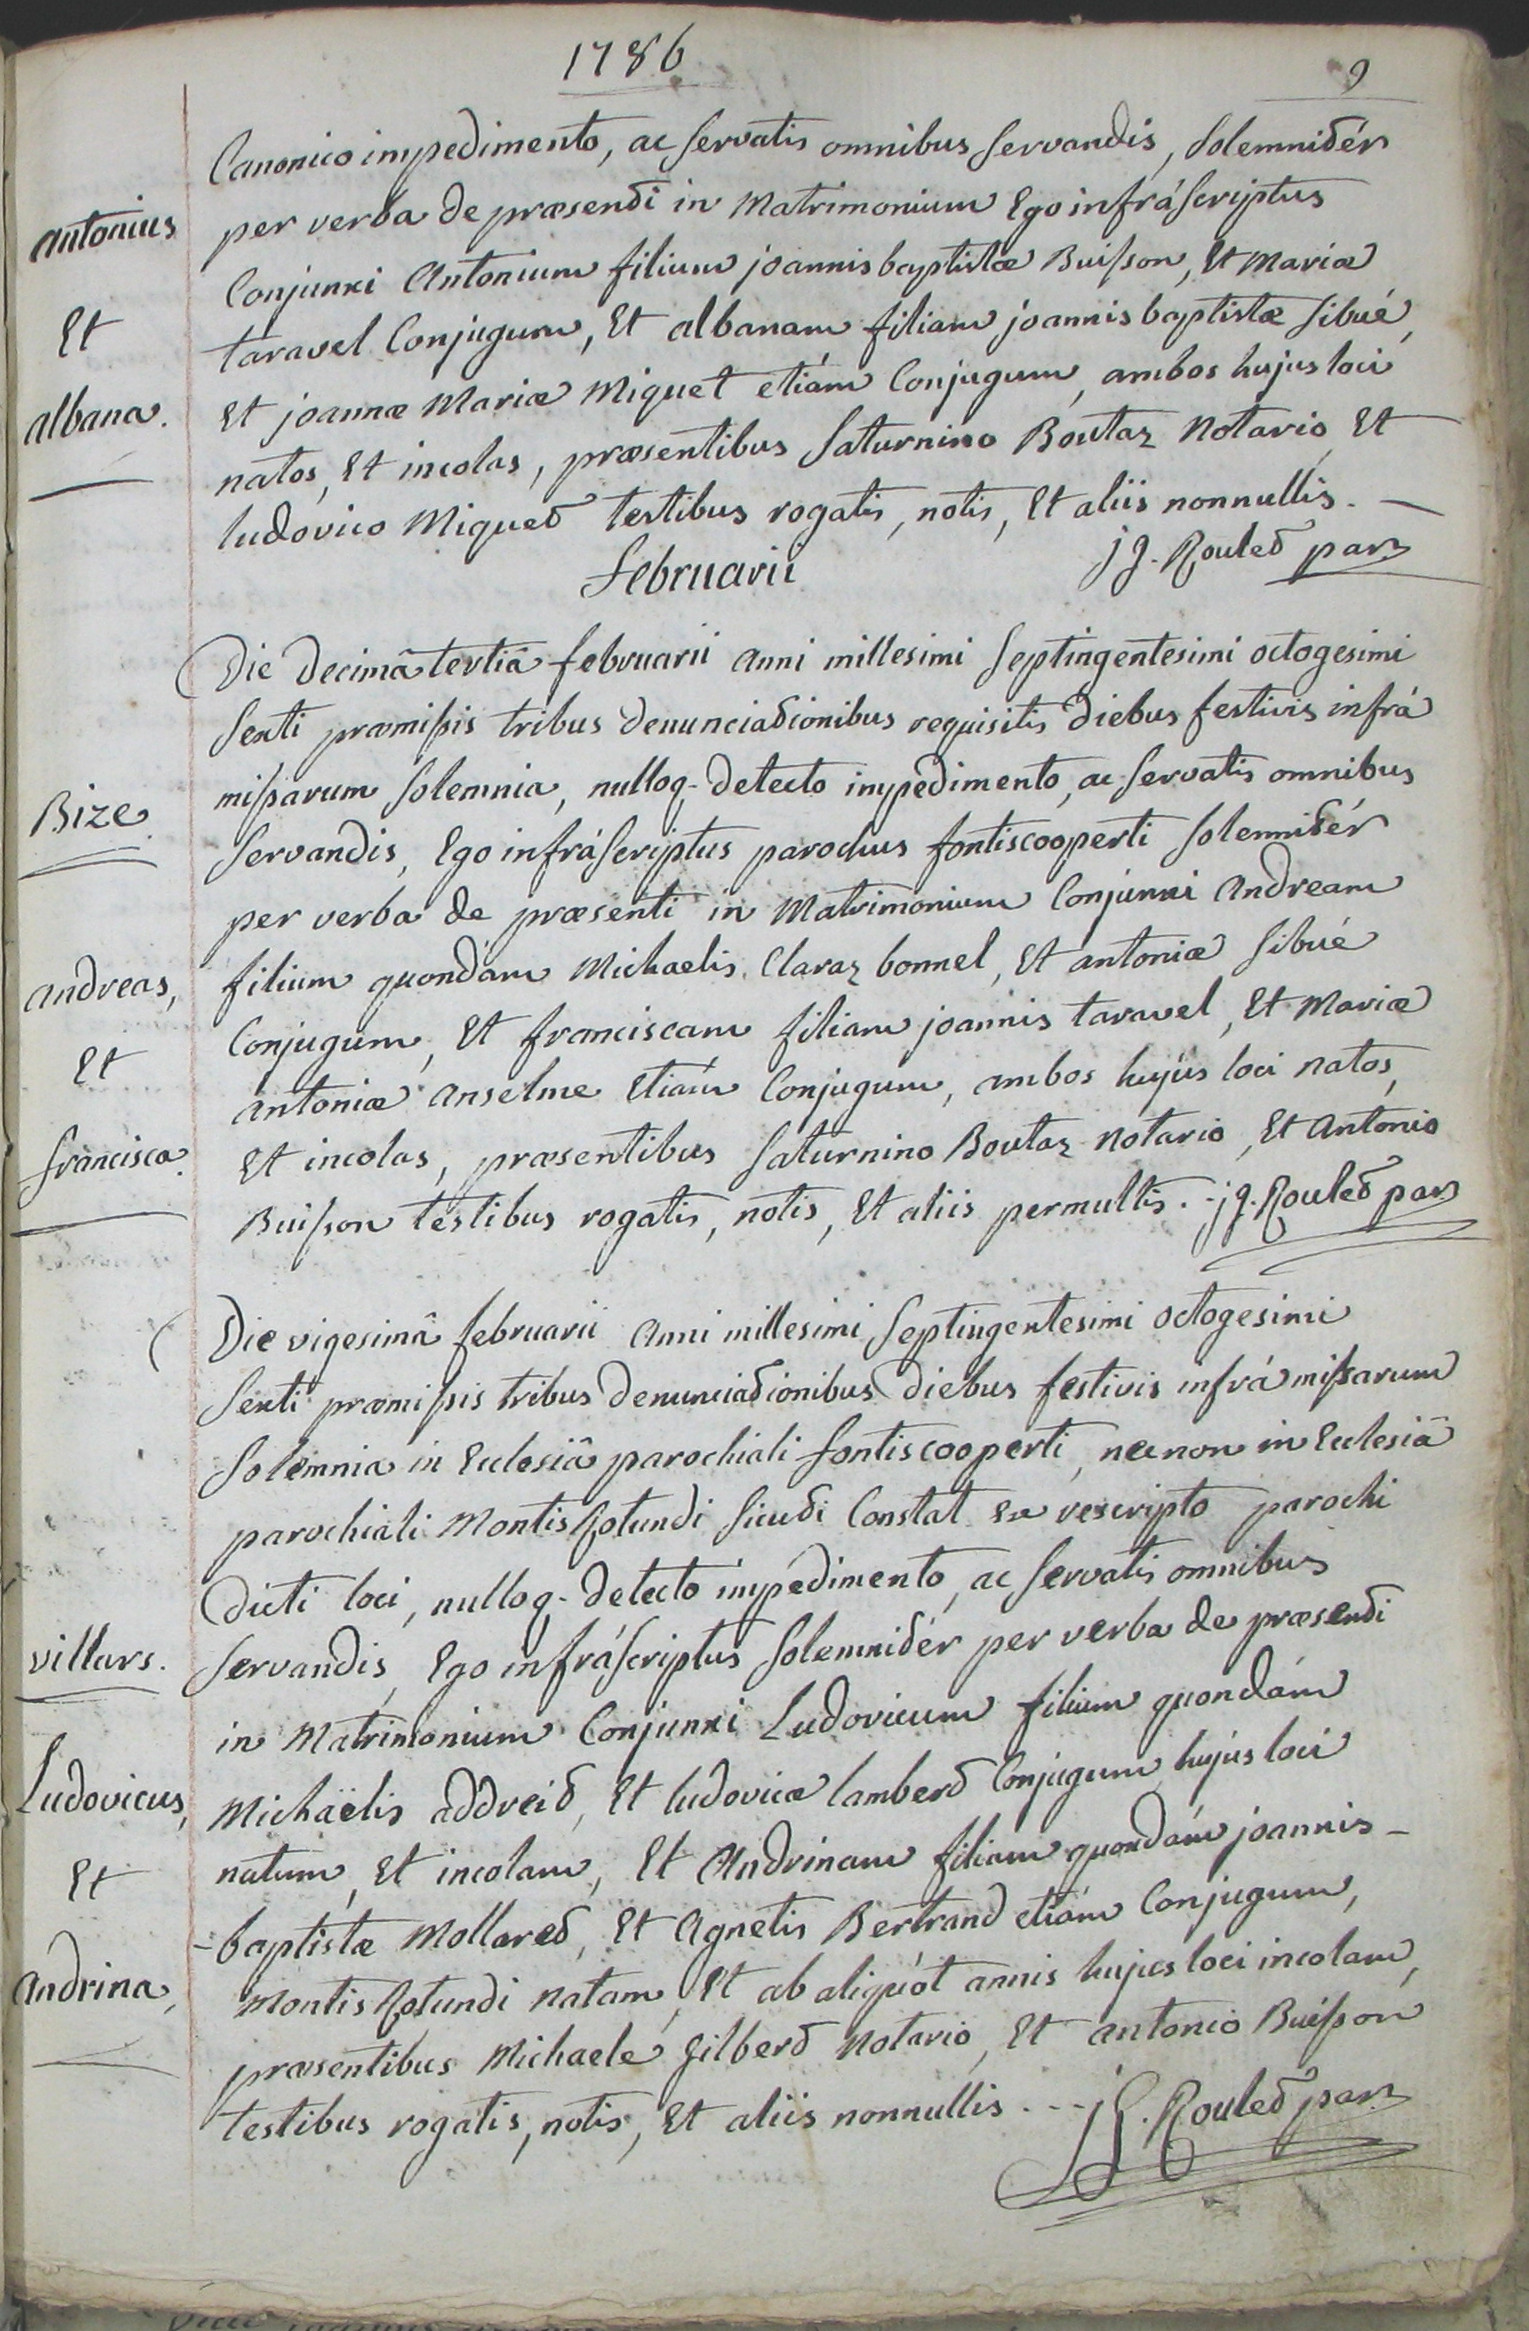 1786
9
Canonico impedimento, ac servatis omnibus servandis, solemnitér
per verba de præsenti in Matrimonium Ego infráscriptus
Antonius
Conjunxi Antonium filium joannis baptistæ Buisson, Et Mariæ
Et
taravel Conjugum, Et albanam filiam joannis baptistæ sibué,
albana.
Et joannæ Mariæ Miquet etiám Conjugum, ambos hujus loci
natos, Et incolas, præsentibus saturnino Boutaz Notario, Et
ludovico Miquet testibus rogatis, notis, Et aliis nonnullis. —
februarii
j g. Roulet par
Die decimâ tertiâ februarii anni millesimi septingentesimi octogesimi
sexti præmissis tribus denunciationibus requisitis diebus festivis infrá
missarum solemnia, nulloq. detecto impedimento, ac servatis omnibus
Bize.
servandis, Ego infráscriptus parochus fontiscooperti solemnitér
per verba de præsenti in Matrimonium Conjunxi Andream
Andreas,
filium quondám Michaelis Claraz bonnel, Et antoniæ sibué
Et
Conjugum, Et franciscam filiam joannis taravel, Et Mariæ
antoniæ anselme Etiám Conjugum, ambos hujus loci natos,
francisca.
Et incolas, præsentibus saturnino Boutaz Notario, Et Antonio
Buisson testibus rogatis, notis, Et aliis permultis. - j g. Roulet par
Die vigesimâ februarii anni millesimi septingentesimi octogesimi
sexti præmissis tribus denunciationibus diebus festivis infrá missarum
solemnia in Ecclesiâ parochiali fontiscooperti, necnon in Ecclesiâ
parochiali Montis Rotundi sicuti Constat Ex rescripto parochi
dicti loci, nulloq. detecto impedimento, ac servatis omnibus
villars.
servandis, Ego infráscriptus solemnitér per verba de præsenti
in Matrimonium Conjunxi Ludovicum filium quondám
Ludovicus,
Michaëlis addreit, Et ludovicæ lambert Conjugum hujus loci
Et
natum, Et incolam, Et Andrinam filiam quondám joannis-
-baptistæ Mollaret, Et Agnetis Bertrand etiám Conjugum,
Andrina,
Montis Rotundi natam, Et ab aliquót annis hujus loci incolam,
præsentibus Michaele gilbert Notario, Et antonio Buisson
testibus rogatis, notis, Et aliis nonnullis. - - j g. Roulet par